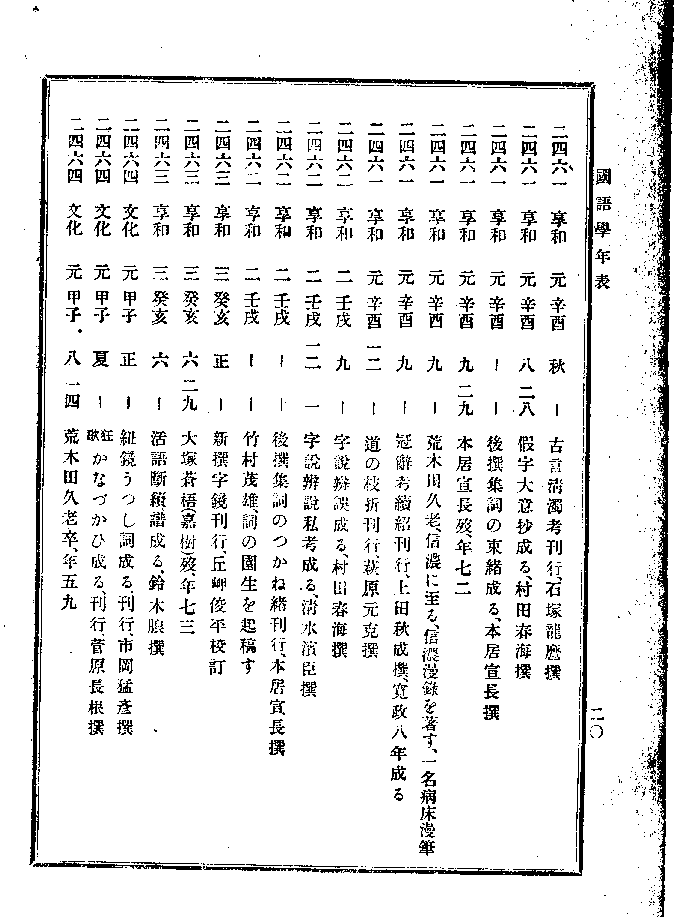 國語學年表
二〇
二四六一 享和 元 辛酉 秋 ー 古言淸濁考刊行、石塚龍麿撰
二四六一 享和 元 辛酉 八 二八 假字大意抄成る、村田春海撰
二四六一 享和 元 辛酉 ー ー 後撰集詞の束緒成る、本居宣長撰
二四六一 享和 元 辛酉 九 二九 本居宣長歿、年七二
二四六一 享和 元 辛酉 九 ー 荒木田久老、信濃に至る、信濃漫錄を著す、一名病床漫筆
二四六一 享和 元 辛酉 九 ー 冠辭考續貂刊行、上田秋成撰、寬政八年成る
二四六一 享和 元 辛酉 一二 ー 道の枝折刊行、萩原元克撰
二四六二 享和 二 壬戌 九 ー 字說辨誤成る、村田春海撰
二四六二 享和 二 壬戌 一二 一 字說辨說私考成る、淸水濱臣撰
二四六二 享和 二 壬戌 ー ー 後撰集詞のつかね緒刊行、本居宣長撰
二四六二 享和 二 壬戌 ー ー 竹村茂雄、詞の園生を起稿す
二四六三 享和 三 癸亥 正 ー 新撰字鏡刊行、丘岬俊平校訂
二四六三 享和 三 癸亥 六 二九 大塚蒼梧(嘉樹)歿、年七三
二四六三 享和 三 癸亥 六 ー 活語斷續譜成る、鈴木朖撰
二四六四 文化 元 甲子 正 ー 紐鏡うつし詞成る、刊行、市岡猛彥撰
二四六四 文化 元 甲子 夏 ー 狂歌かなづかひ成る、刊行菅原長根撰
二四六四 文化 元 甲子 八 一四 荒木田久老卒、年五九